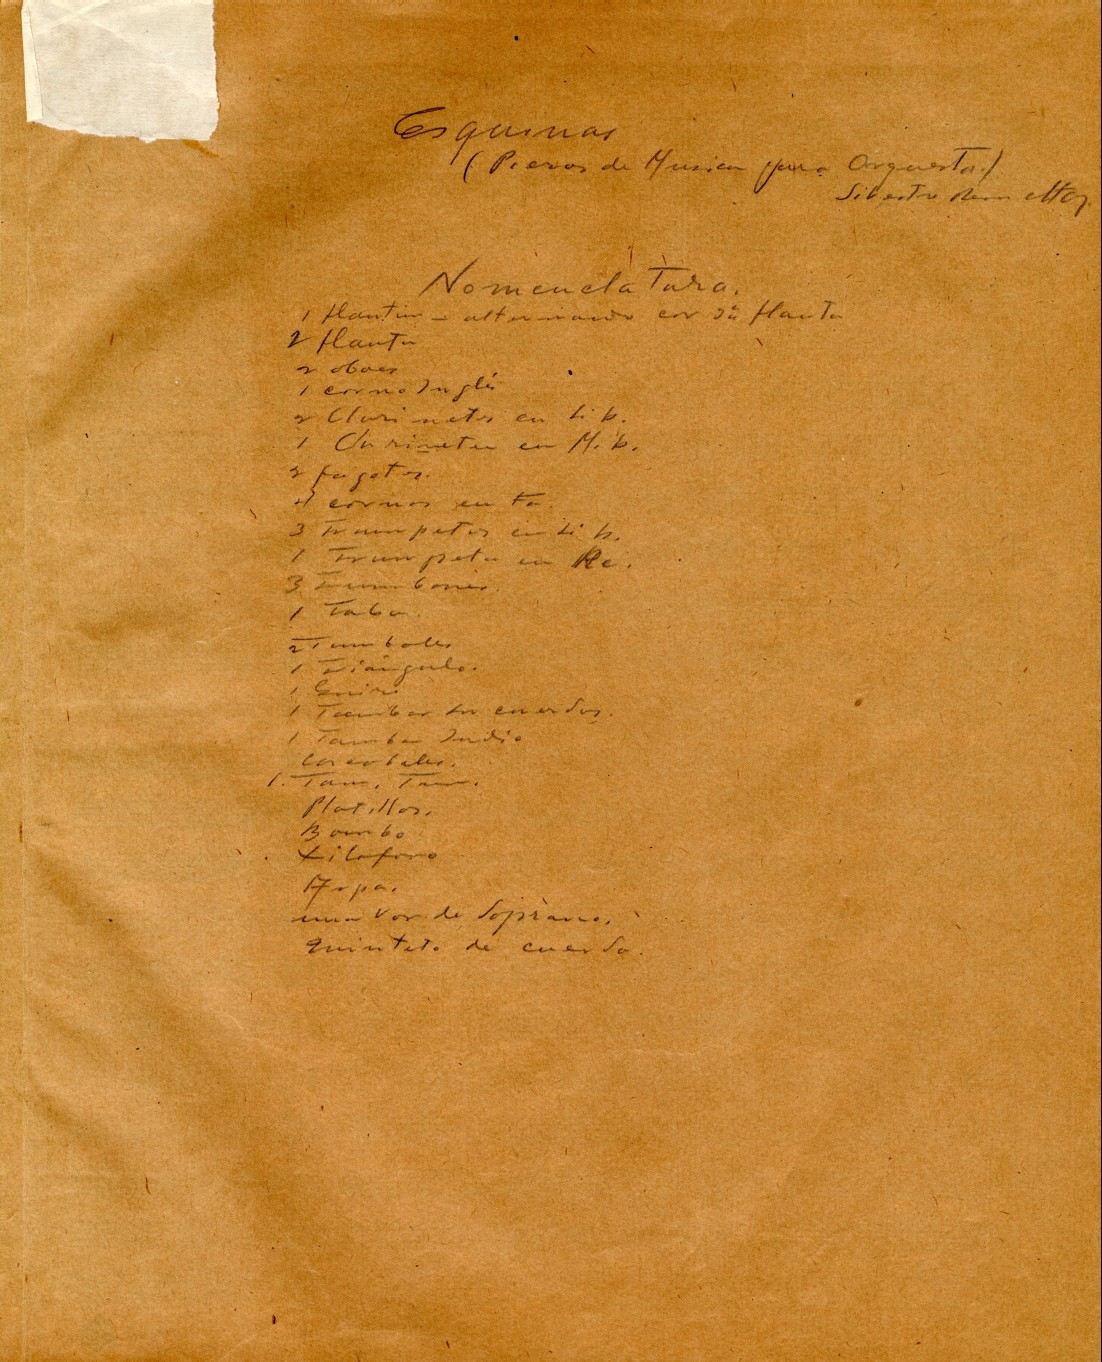 Esquinas
(Piezas de Musica para Orquesta.)
Silvestre Revueltas
Nomenclatura.
1 flautin – alternando con 3ª flauta
2 flautas
2 oboes
1 corno Inglés
2 Clarinetes en Si b.
1 Clarinete en Mi b.
2 fagotes.
4 cornos en Fa.
3 Trompetas en Si b.
1 Trompeta en Re.
3 Trombones
1 Tuba.
2 Timbales
1 Triángulo.
1 Guiro
1 Tambor sin cuerdas.
1 Tambor Indio
Cascabeles.
1. Tam, Tam.
Platillos.
Bombo
Xilofono
Arpa.
una voz de Soprano.
Quinteto de cuerda.